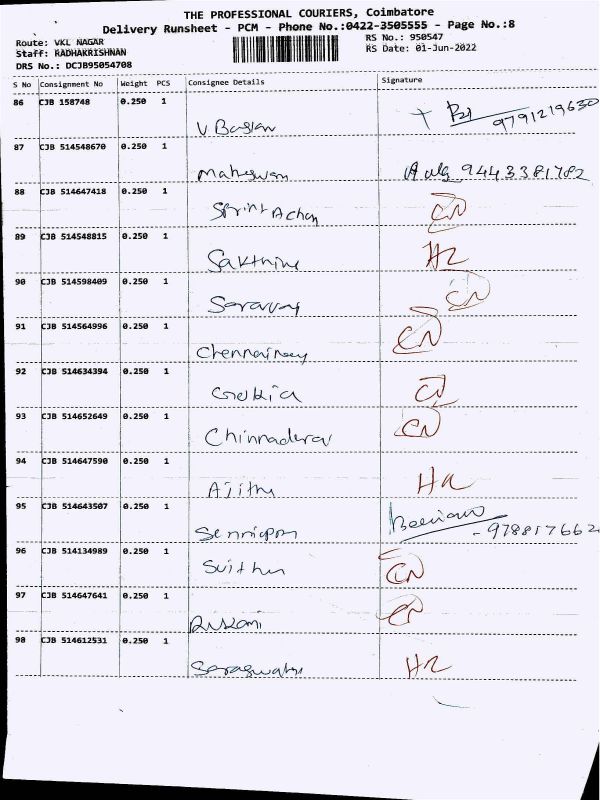 THE PROFESSIONAL COURIERS, Coimbatore
Delivery Runsheet - PCM - Phone No.:0422-3505555 - Page No.:8
Route: VKL NAGAR
RS No.: 950547
Staff: RADHAKRISHNAN
RS Date: 01-Jun-2022
DRS No.: DCJB95054708
S No Consignment No Weight PCS Consignee Details Signature
86 CJB 158748 0.250 1
V Baskar 9791219630
87 CJB 514548670 1
Maheswari 9443381782
88 CJB 514647418 0.250 1
Sprint Achan CN
89 CJB 514548815 0.250 1
Sakthive HR
90 CJB 514598409 0.250 1
Saravan CN
91 CJB 514564996 0.250 1
CN
92 CJB 514634394 0.250 1
CN
93 CJB 514652649 0.250 1
Chinnadurai CN
94 CJB 514647590 0.250 1
Ajithu HR
95 CJB 514643507 0.250 1
-978817662
96 CJB 514134989 0.250 1
Sujithu CN
97 CJB 514647641 0.250 1
CN
98 CJB 514612531 0.250 1
Saraswathi HR